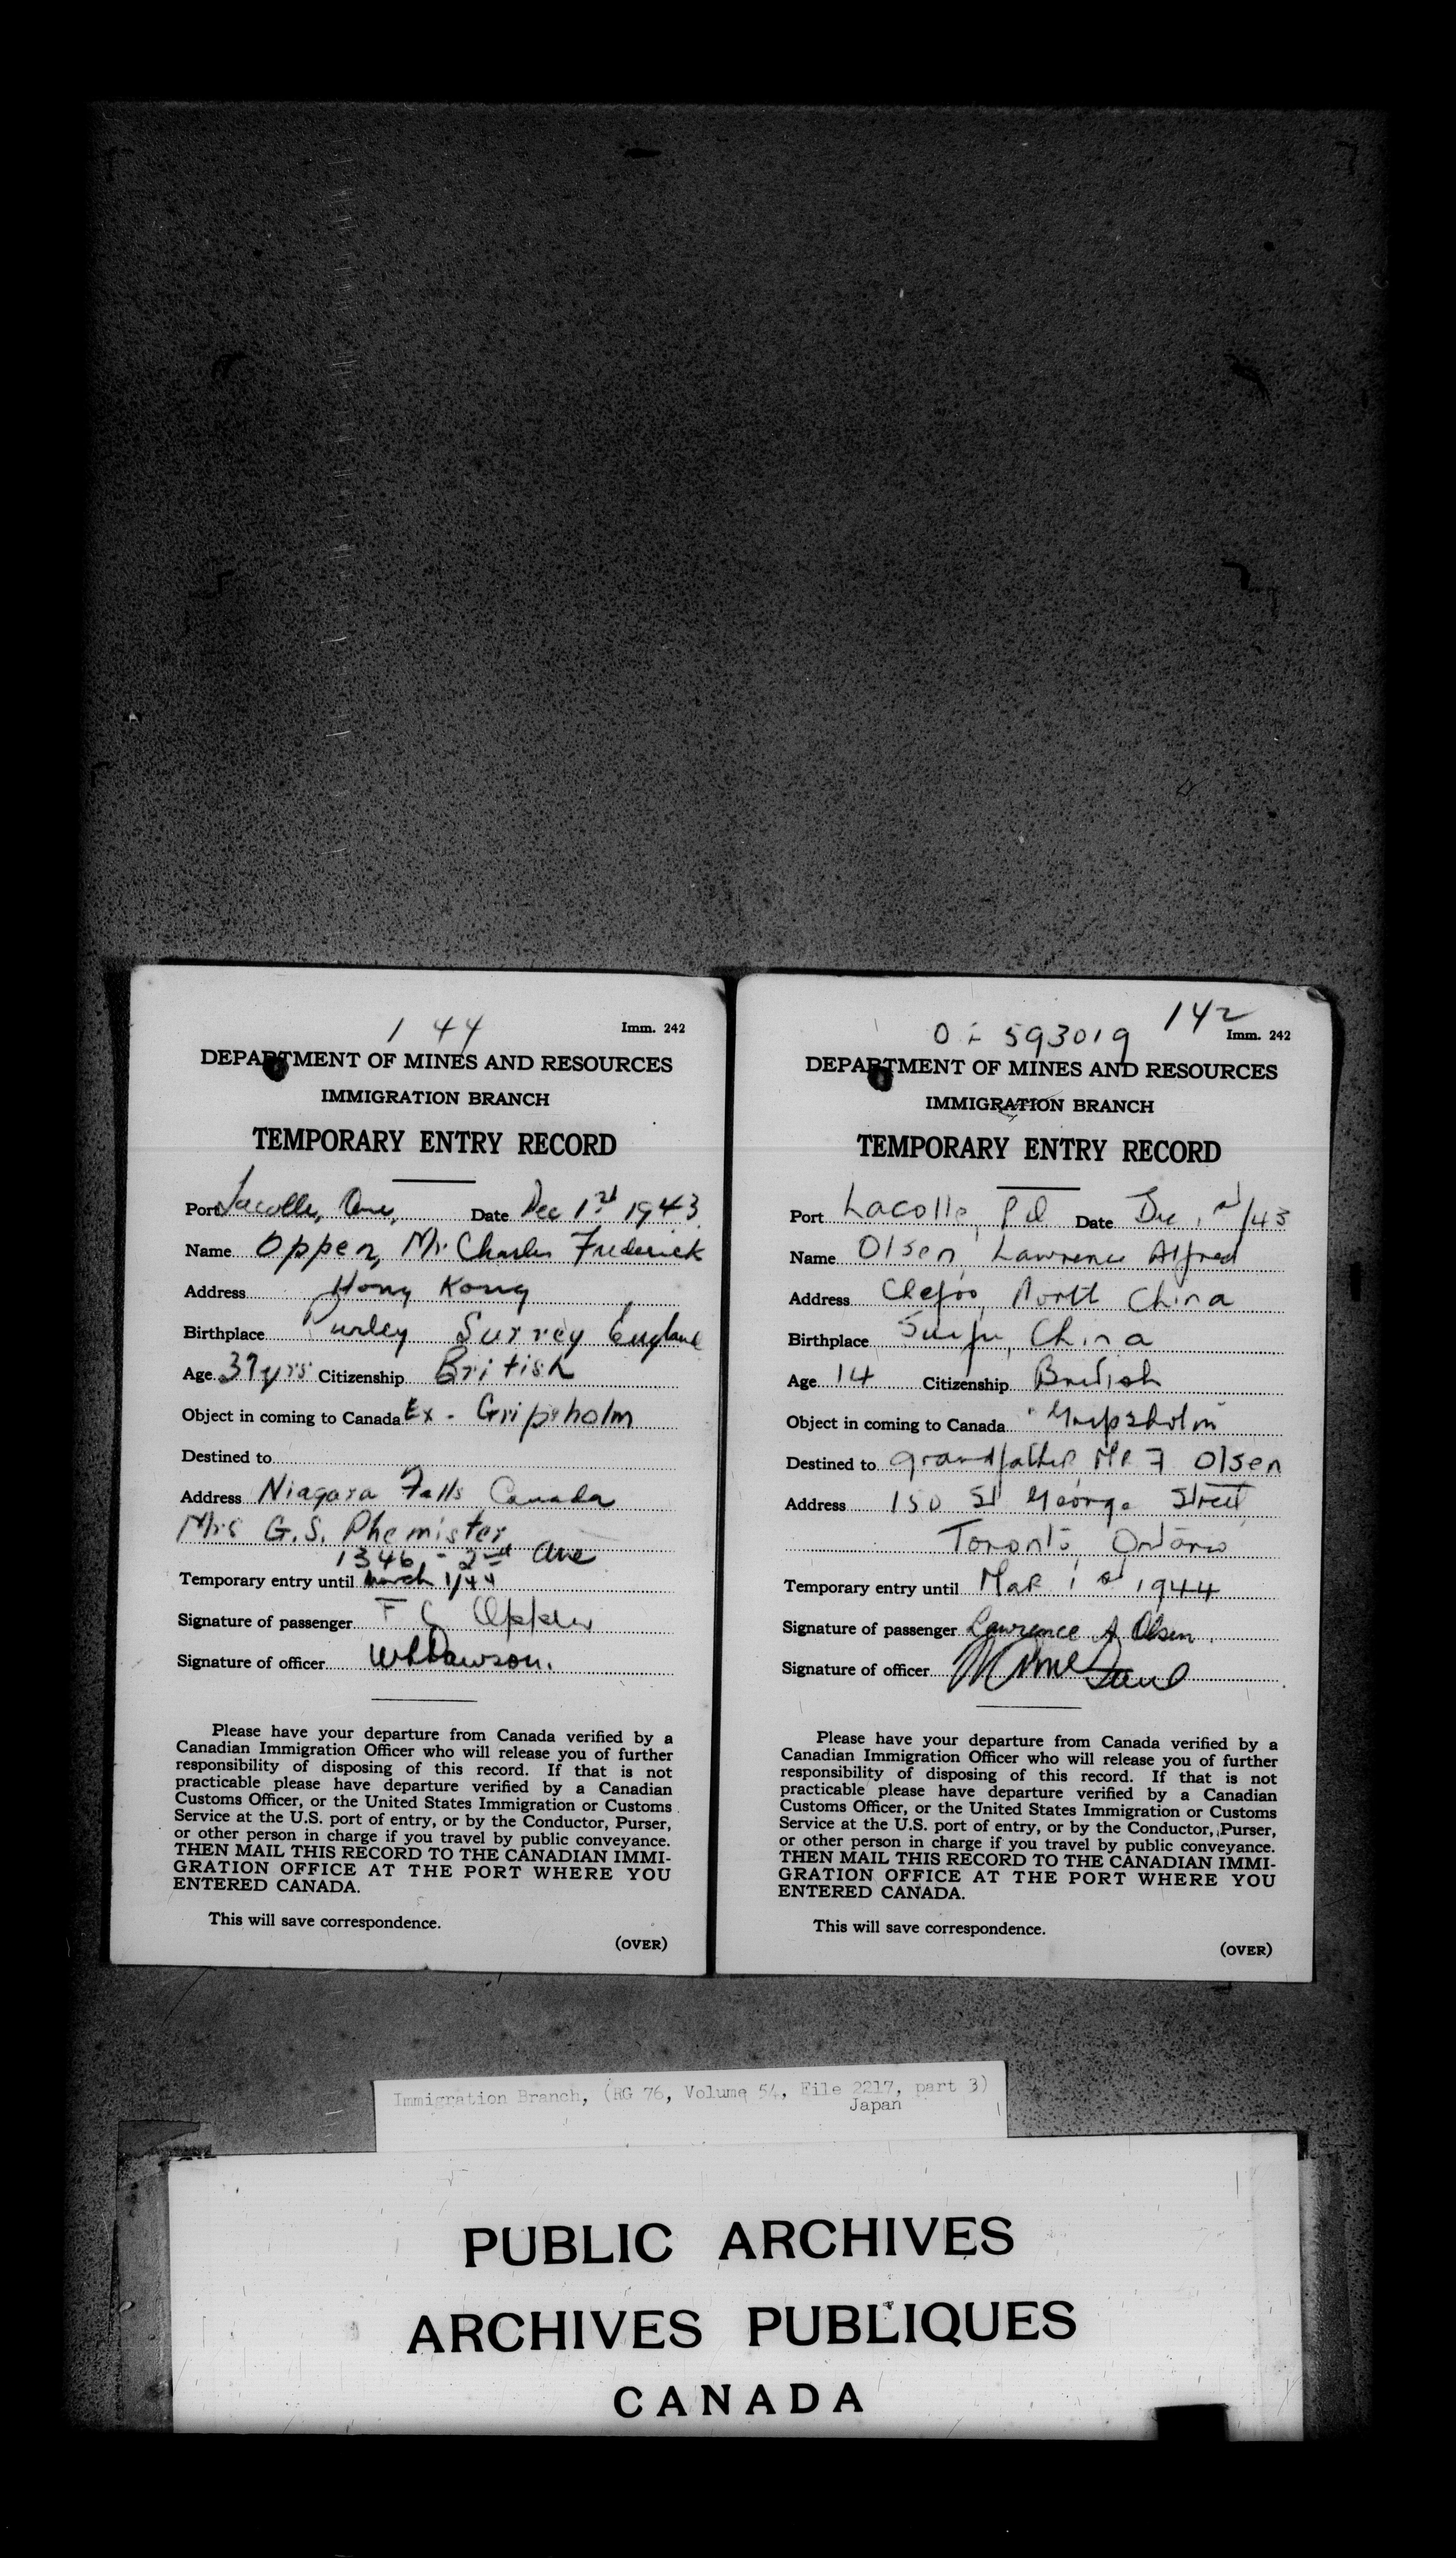 1 44
Imm. 242
DEPARTMENT OF MINES AND RESOURCES
IMMIGRATION BRANCH
TEMPORARY ENTRY RECORD
Port Lacolle, Que, Date Dec 1st 1943
Name Oppen, Mr Charles Frederick
Address Hong Kong
Birthplace Purley Surrey England
Age 37 yrs Citizenship British
Object in coming to Canada Ex - Gripsholm
Destined to
Address Niagara Falls Canada
Mrs G.S. Phemister
1346 - 2nd Ave
Temporary entry until March 1/44
Signature of passenger F C Oppen
Signature of officer Dawson.
Please have your departure from Canada verified by a
Canadian Immigration Officer who will release you of further
responsibility of disposing of this record. If that is not
practicable please have departure verified by a Canadian
Customs Officer, or the United States Immigration or Customs
Service at the U.S. port of entry, or by the Conductor, Purser,
or other person in charge if you travel by public conveyance.
THEN MAIL THIS RECORD TO THE CANADIAN IMMI-
GRATION OFFICE AT THE PORT WHERE YOU
ENTERED CANADA.
This will save correspondence.
(OVER)
142
593019
Imm. 242
DEPARTMENT OF MINES AND RESOURCES
IMMIGRATION BRANCH
TEMPORARY ENTRY RECORD
Port Lacolle, P Q Date Dec 1st/43
Name Olsen, Lawrence Alfred
Address Chefoo, North China
Birthplace Suifu, China
Age 14 Citizenship British
Object in coming to Canada "Gripsholm"
Destined to grandfather Mr F Olsen
Address 150 St George Street,
Toronto, Ontario
Temporary entry until Mar 1st 1944
Signature of passenger Lawrence A Olsen.
Signature of officer
Please have your departure from Canada verified by a
Canadian Immigration Officer who will release you of further
responsibility of disposing of this record. If that is not
practicable please have departure verified by a Canadian
Customs Officer, or the United States Immigration or Customs
Service at the U.S. port of entry, or by the Conductor, Purser,
or other person in charge if you travel by public conveyance.
THEN MAIL THIS RECORD TO THE CANADIAN IMMI-
GRATION OFFICE AT THE PORT WHERE YOU
ENTERED CANADA.
This will save correspondence.
(OVER)
Immigration Branch, (RG 76, Volume 54, File 2217, part 3)
Japan
PUBLIC ARCHIVES
ARCHIVES PUBLIQUES
CANADA